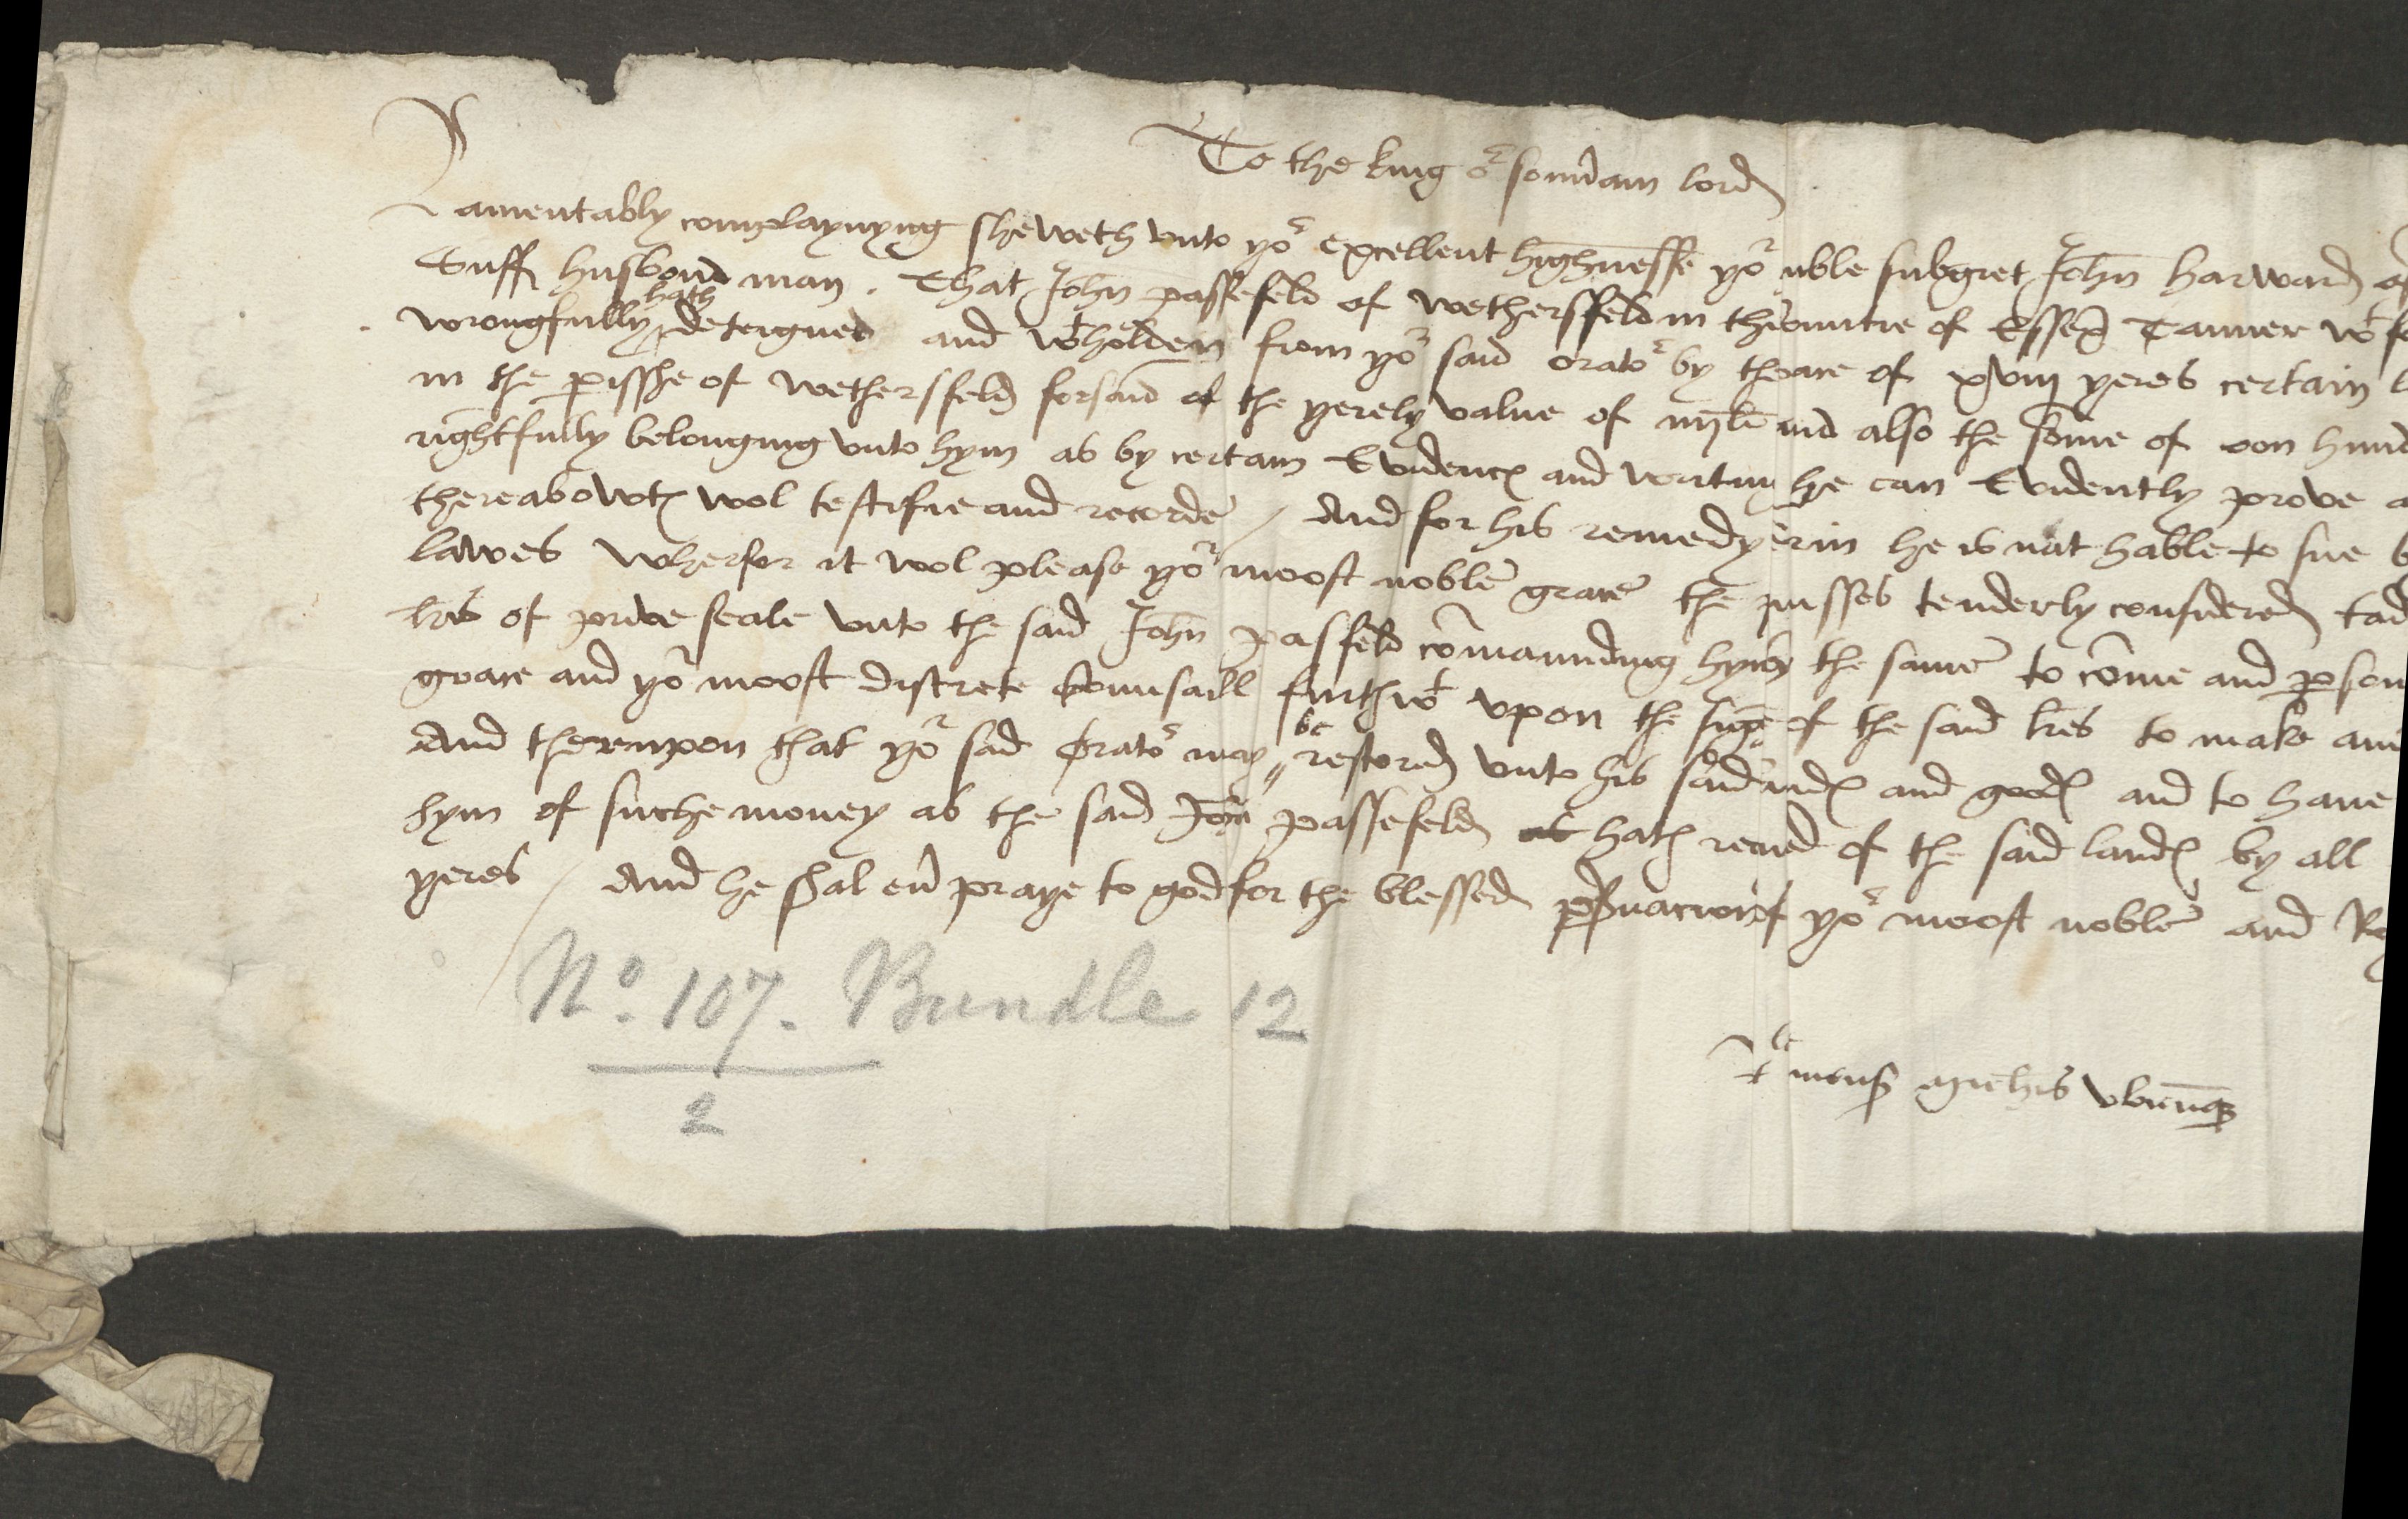 To the king or soũam lord
Lamentably complaynyng sheweth vnto yor excellent highnesse yor uble subgiet John harward of
Suff husbond man . That John passefeld of wethersfeld in thecountie of Essex Tanner wt
wrongfully hath deteigned and wtholden from yor said orator by the space of xviij yeres certain
in the pisshe of wethersfeld forsaid of the yerely value of iiij li and also the some of oon hund
rightfully belonging vnto hym as by certain Evidence and writing he can Evidently prove
thereabowte wol testifie and recorde / And for his remedy erin he is nat hable to sue b
lawes Wherfor it wol please yor moost noble grace the pmisses tenderly considered tad
lres of prive seale vnto the said John passfeld cõmaunding hym by the same to cõme and pson
grace and yor moost discrete Counsaill furthwt vpon the sight of the said lres to make ans
And therunpon that yor said Orator may be restored vnto his said landes and goodes and to haue
hym of suche money as the said John passefeld hath receued of the said landes by all
yeres / And he shal eũ praye to god for the blessed pseruacion of yor moost noble and Ro
No. 107. Bundle 12
2